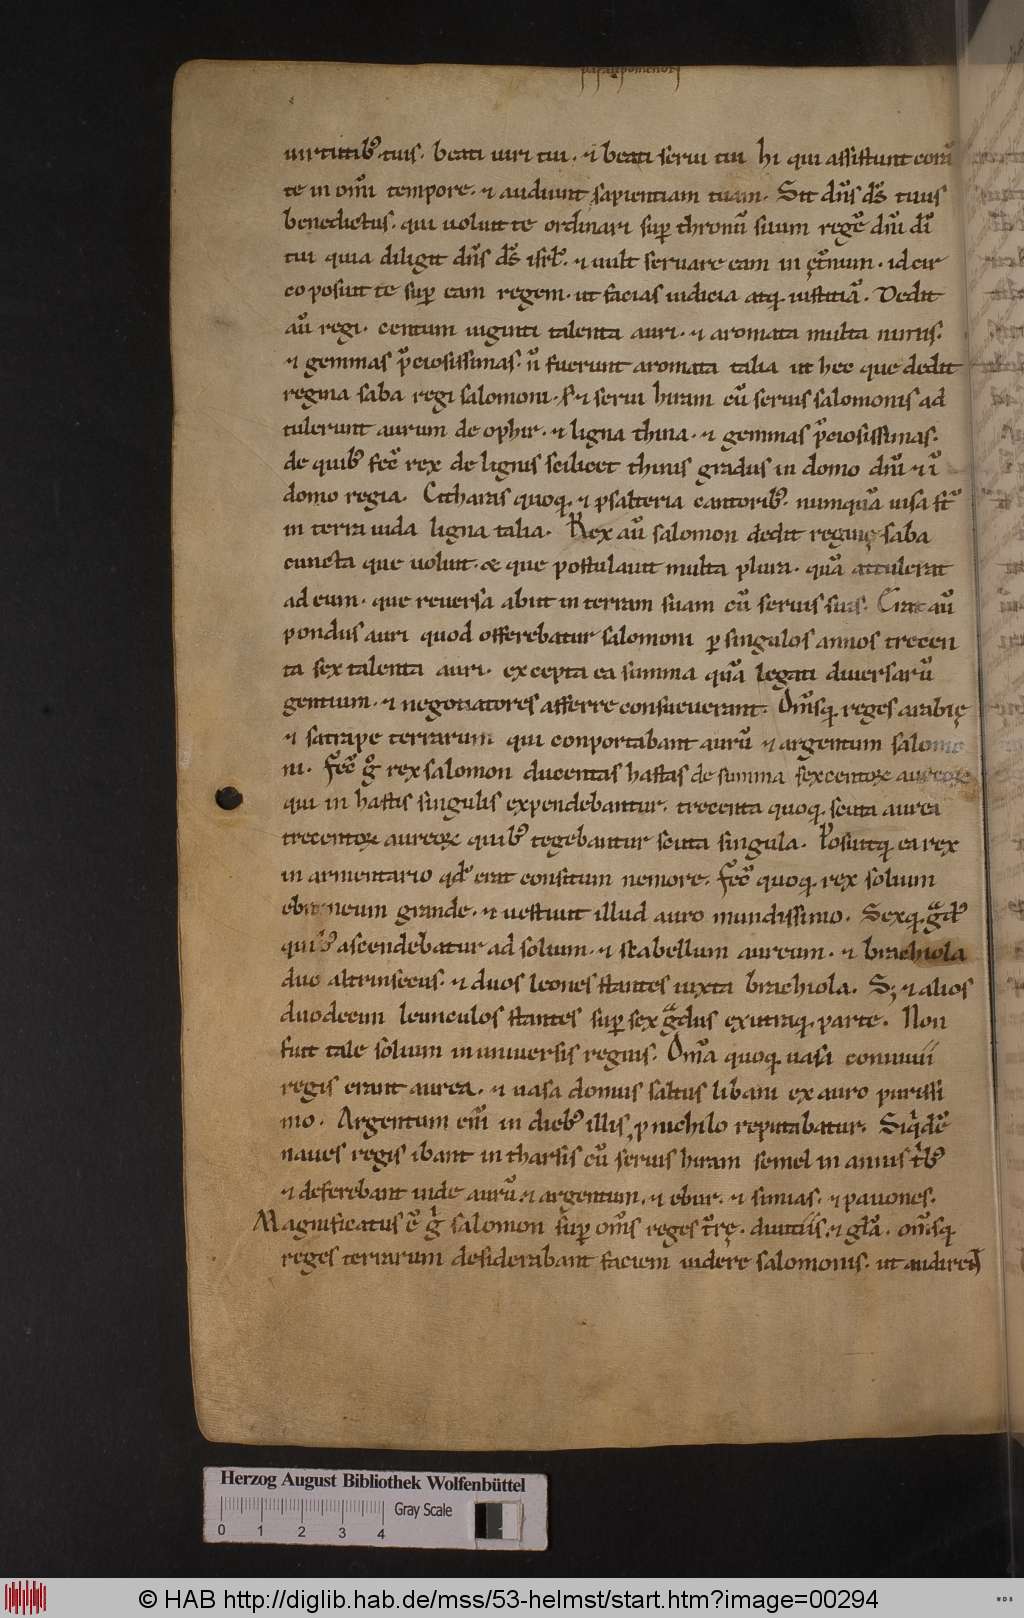 paralipomenorum
uirtutib; tuis. beati uiri tui. ⁊ beati serui tui hi qui assistunt corā
te in om̄i tempore. ⁊ audiunt sapientiam tuam. Sit dn̄s ds̄ tuus
benedictus. qui uoluit te ordinari sup̱ thronū suum regē dn̄i di̅
tui quia diligit dn̄s ds̄ isrl̄. ⁊ uult seruare eam in ęt̄num. id cir
co posuit te sup̱ eam regem. ut facias iudicia atq; iustitiā. Dedit
aū regi. centum uiginti talenta auri. ⁊ aromata multa nimis.
⁊ gemmas p̄ciosissimas. n̄ fuerunt aromata talia ut hec que dedit
regina saba regi salomoni. S; ⁊ serui hiram cū seruis salomonis ad
tulerunt aurum de ophir. ⁊ ligna thina. ⁊ gemmas p̄ciosissimas.
de quib; fec̄ rex de lignis scilicet thinis gradus in domo dn̄i ⁊ ī
domo regia. Citharas quoq; ⁊ psalteria cantorib;. numquā uisa st̄
in terra iuda ligna talia. Rex aū salomon dedit reginę saba
cuncta que uoluit. & que postulauit multa plura. quā attulerat
ad eum. que reuersa abiit in terram suam cū seruis suis. Erat aū
pondus auri quod offerebatur salomoni p̱ singulos annos trecen
ta sex talenta auri. excepta ea summa quā legati diuersarū
gentium. ⁊ negotiatores afferre consueuerant. Om̄sq; reges arabię
⁊ satrape terrarum qui conportabant aurū ⁊ argentum salomo
ni. Fec̄ gͦ rex salomon ducentas hastas de summa sexcentoꝝ aureoꝝ
qui in hastis singulis expendebantur. trecenta quoq; scuta aurea
trecentoꝝ aureoꝝ quib; tegebantur scuta singula. Posuitq; ea rex
in armentario qd̄ erat consitum nemore. Fec̄ quoq; rex solium
eburneum grande. ⁊ uestiuit illud auro mundissimo. Sexq; gᵃd;
quib; ascendebatur ad solium. ⁊ scabellum aureum. ⁊ brachiola
duo altrinsecus. ⁊ duos leones stantes iuxta brachiola. S; ⁊ alios
duodecim leunculos stantes sup̱ sex gᵃdus ex utraq; parte. Non
fuit tale solium in uniuersis regnis. Om̄a quoq; uasa conuiuii
regis erant aurea. ⁊ uasa domus saltus libani ex auro purissi
mo. Argentum eni̅ in dieb; illis, p nichilo reputabatur. Siqⁱdē
naues regis ibant in tharsis cū seruis hiram semel in annis tⁱb;
⁊ deferebant inde aurū. ⁊ argentum. ⁊ ebur. ⁊ simias. ⁊ pauones.
Magnificatus ē gⁱ salomon sup̱ om̄s reges t̄rę. diuitiis. ⁊ gl̄a. om̄sq;
reges terrarum desiderabant faciem uidere salomonis. ut audirent
Herzog August Bibliothek Wolfenbüttel
Gray Scale
0 1 2 3 4
© HAB http://diglib.hab.de/mss/53-helmst/start.htm?image=00294